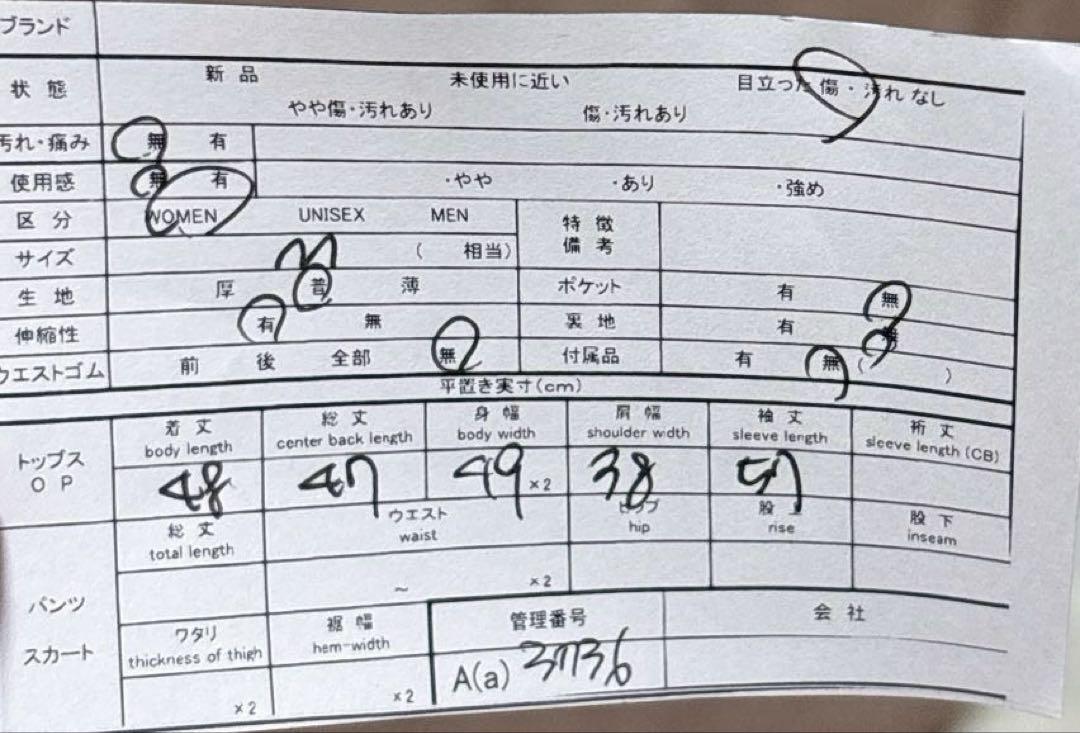 ブランド
状態 新品 未使用に近い 目立った傷・汚れなし
やや傷・汚れあり 傷・汚れあり
汚れ・痛み 無 有
使用感 無 有 ・やや ・あり ・強め
区分 WOMEN UNISEX MEN 特徴備考
サイズ M ( 相当)
生地 厚 普 薄 ポケット 有 無
伸縮性 有 無 裏地 有 無
ウエストゴム 前 後 全部 無 付属品 有 無 ( )
平置き実寸(cm)
トップス OP 着丈 総丈 身幅 肩幅 袖丈 裄丈
body length center back length body width shoulder width sleeve length sleeve length (CB)
48 47 49 ×2 38 57
パンツ スカート 総丈 ウエスト ヒップ 股上 股下
total length waist hip rise inseam
~ ×2
ワタリ 裾幅 管理番号 会社
thickness of thigh hem-width
×2 ×2 A(a) 3736